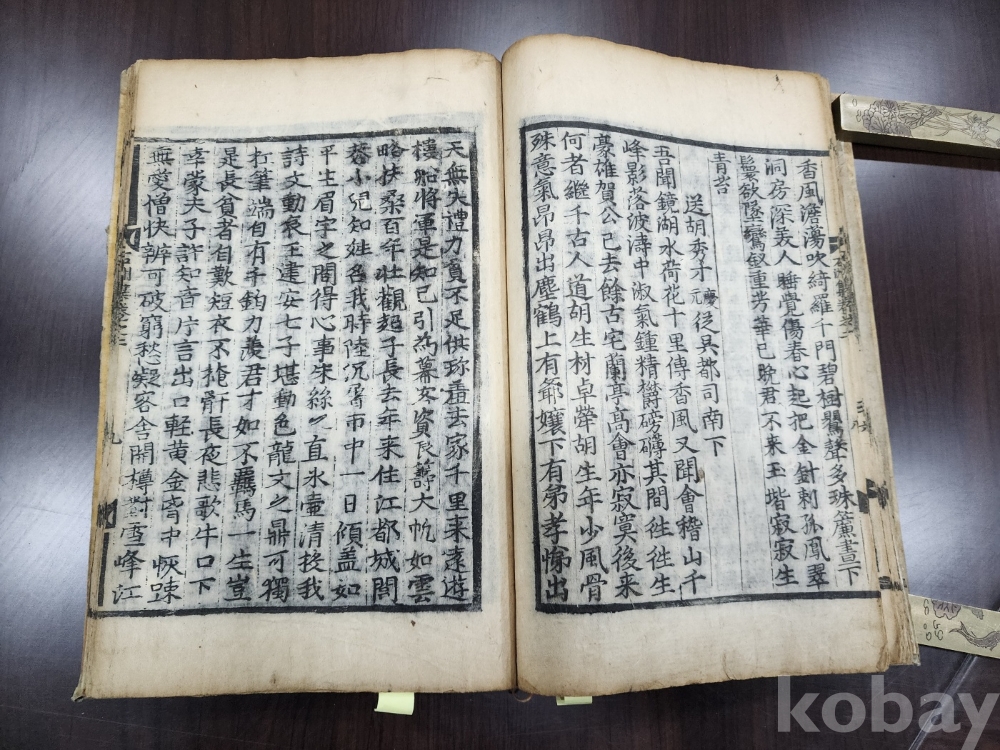 香風澹蕩吹綺羅千門碧樹鸎聲多珠簾晝下
洞房深美人睡覺傷春心起把金針刺孤鳳翠
鬟欲墜鸞釵重芳華已晩君不來玉堦寂寂生
青苔
送胡秀才慶從具都司南下
吾聞鏡湖水荷花十里傳香風又聞會稽山千
峰影落波濤中淑氣鍾精欝磅礡其間徃徃生
豪雄賀公已去餘古宅蘭亭高會亦寂寞後來
何者繼千古人道胡生材卓犖胡生年少風骨
殊意氣昂昂出塵鶴上有爺孃下有弟孝悌出
天無失禮力貧不足供珎羞去家千里来遠遊
樓船將軍是知己引為幕客資良籌大帆如雲
略扶桑百年壯觀趙子長去年来住江都城閭
巷小兒知姓名我時陸沉屠市中一日傾盖如
平生眉宇之閒得心事朱絲之直氷壷清投我
詩文動衰王建安七子堪動色龍文之鼎可獨
扛筆端自有千鈞力羡君才如不羈馬一生豈
是長貧者自歎短衣不掩骭長夜悲歌牛口下
幸蒙夫子許知音片言出口輕黄金胷中恢踈
無愛憎快辨可破窮愁凝客舎開樽對雪峰江
九
kobay